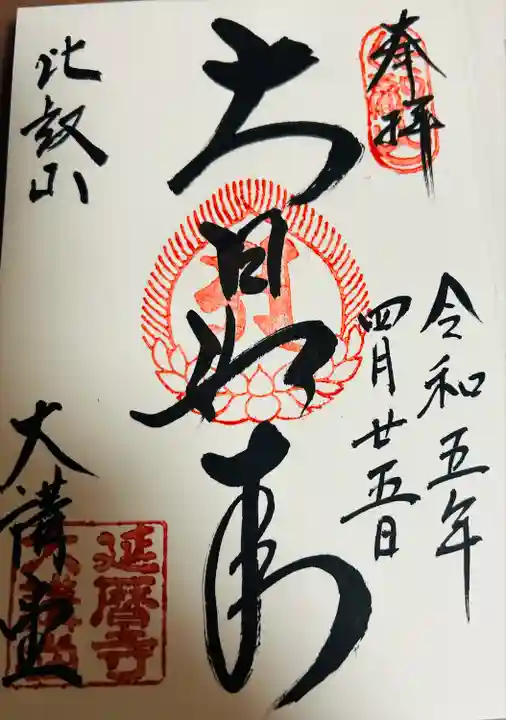 奉拝
令和五年
四月廿五日
大日如来
比叡山
大講堂
延暦寺
大講堂